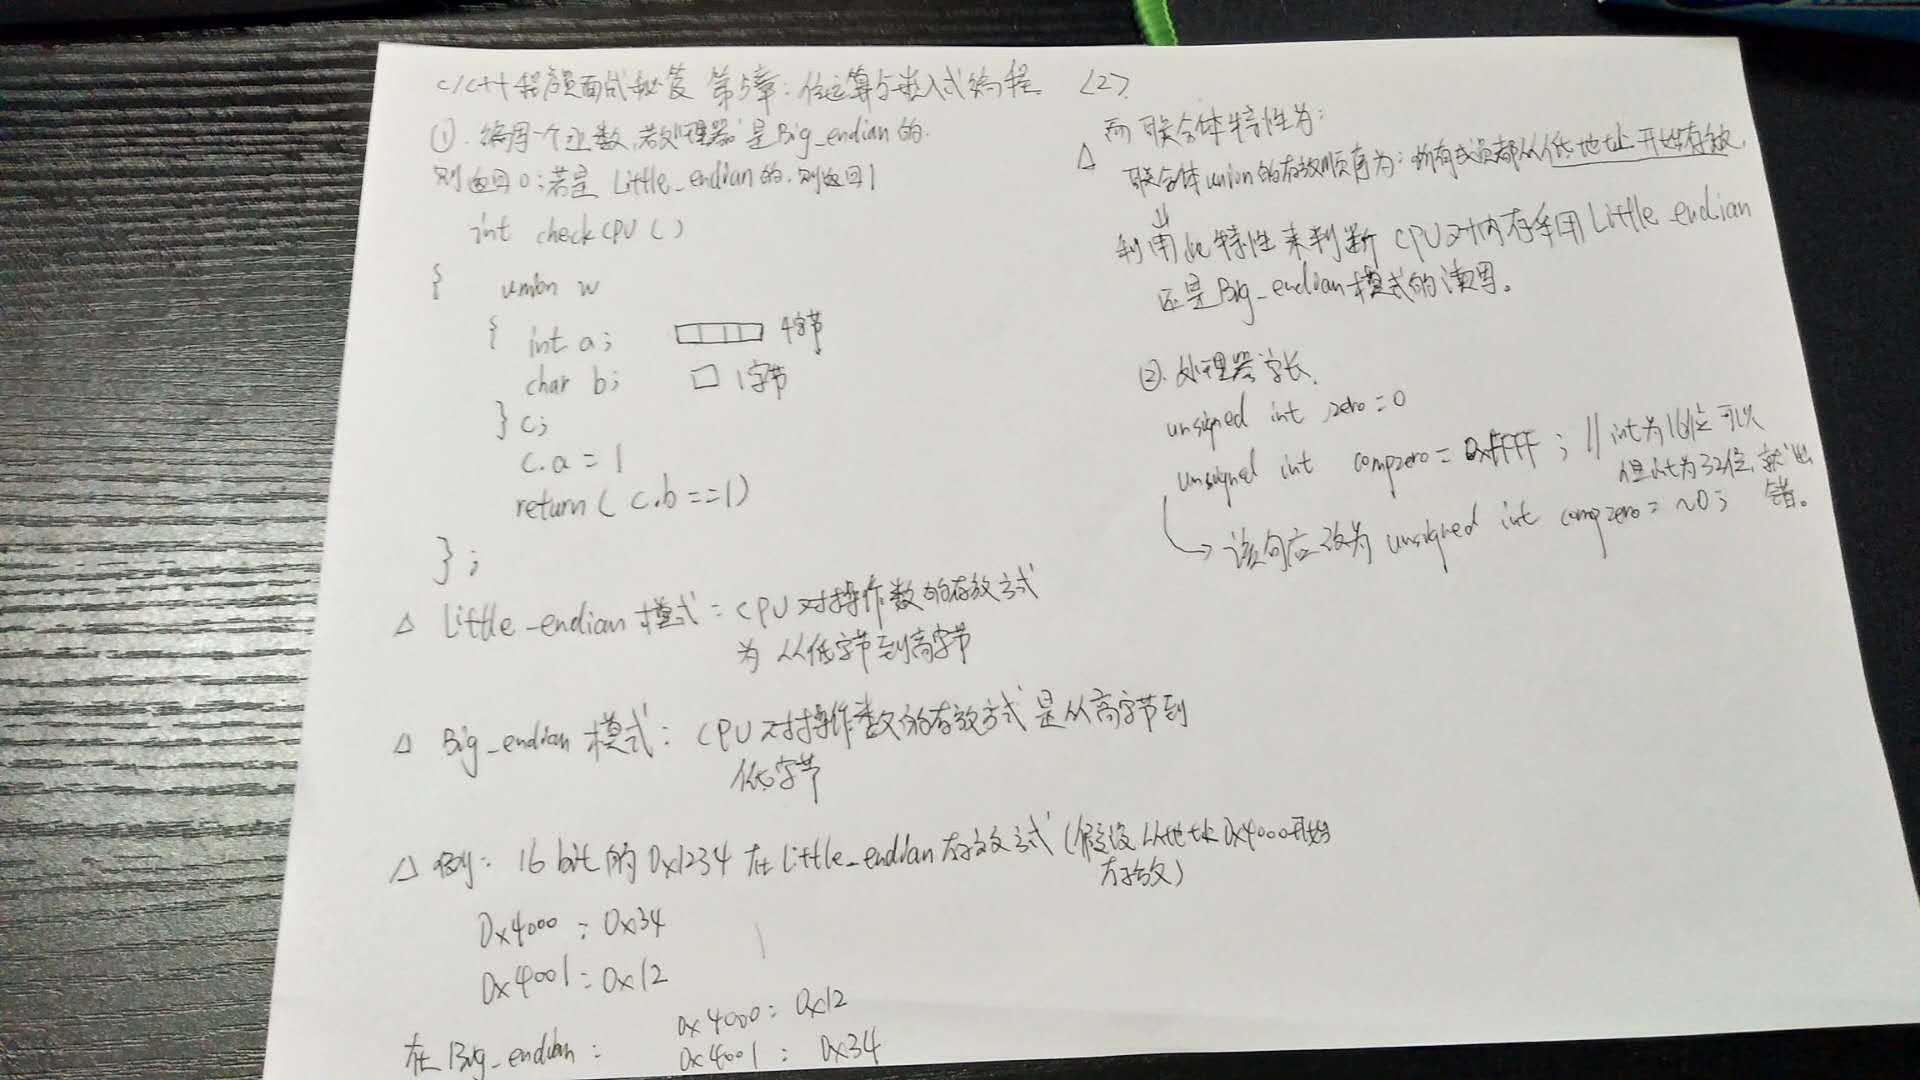 C/C++程序员面试秘笈 第5章：位运算与嵌入式编程 <2>
①. 编写一个函数,若处理器是Big_endian的.
则返回0;若是Little_endian的.则返回1
int checkCPU()
{
union w
{ int a; 4字节
char b; 1字节
} c;
c.a = 1
return( c.b ==1)
};
△ Little_endian模式: CPU对操作数的存放方式
为 从低字节到高字节
△ Big_endian模式: CPU对操作数的存放方式是从高字节到
低字节
△ 例: 16 bit的0x1234在Little_endian存放方式(假设从地址0x4000开始
存放)
0x4000 : 0x34
0x4001 : 0x12
在Big_endian : 0x4000: 0x12
0x4001 : 0x34
而联合体特性为:
△ 联合体union的存放顺序为: 所有成员都从低地址开始存放.
⇓
利用此特性来判断CPU对内存采用Little_endian
还是Big_endian模式的读写。
②. 处理器字长.
unsigned int zero = 0
unsigned int compzero = 0xFFFF ; // int为16位可以
但int为32位,就出
错。
→ 该句应改为 unsigned int compzero = ~0;